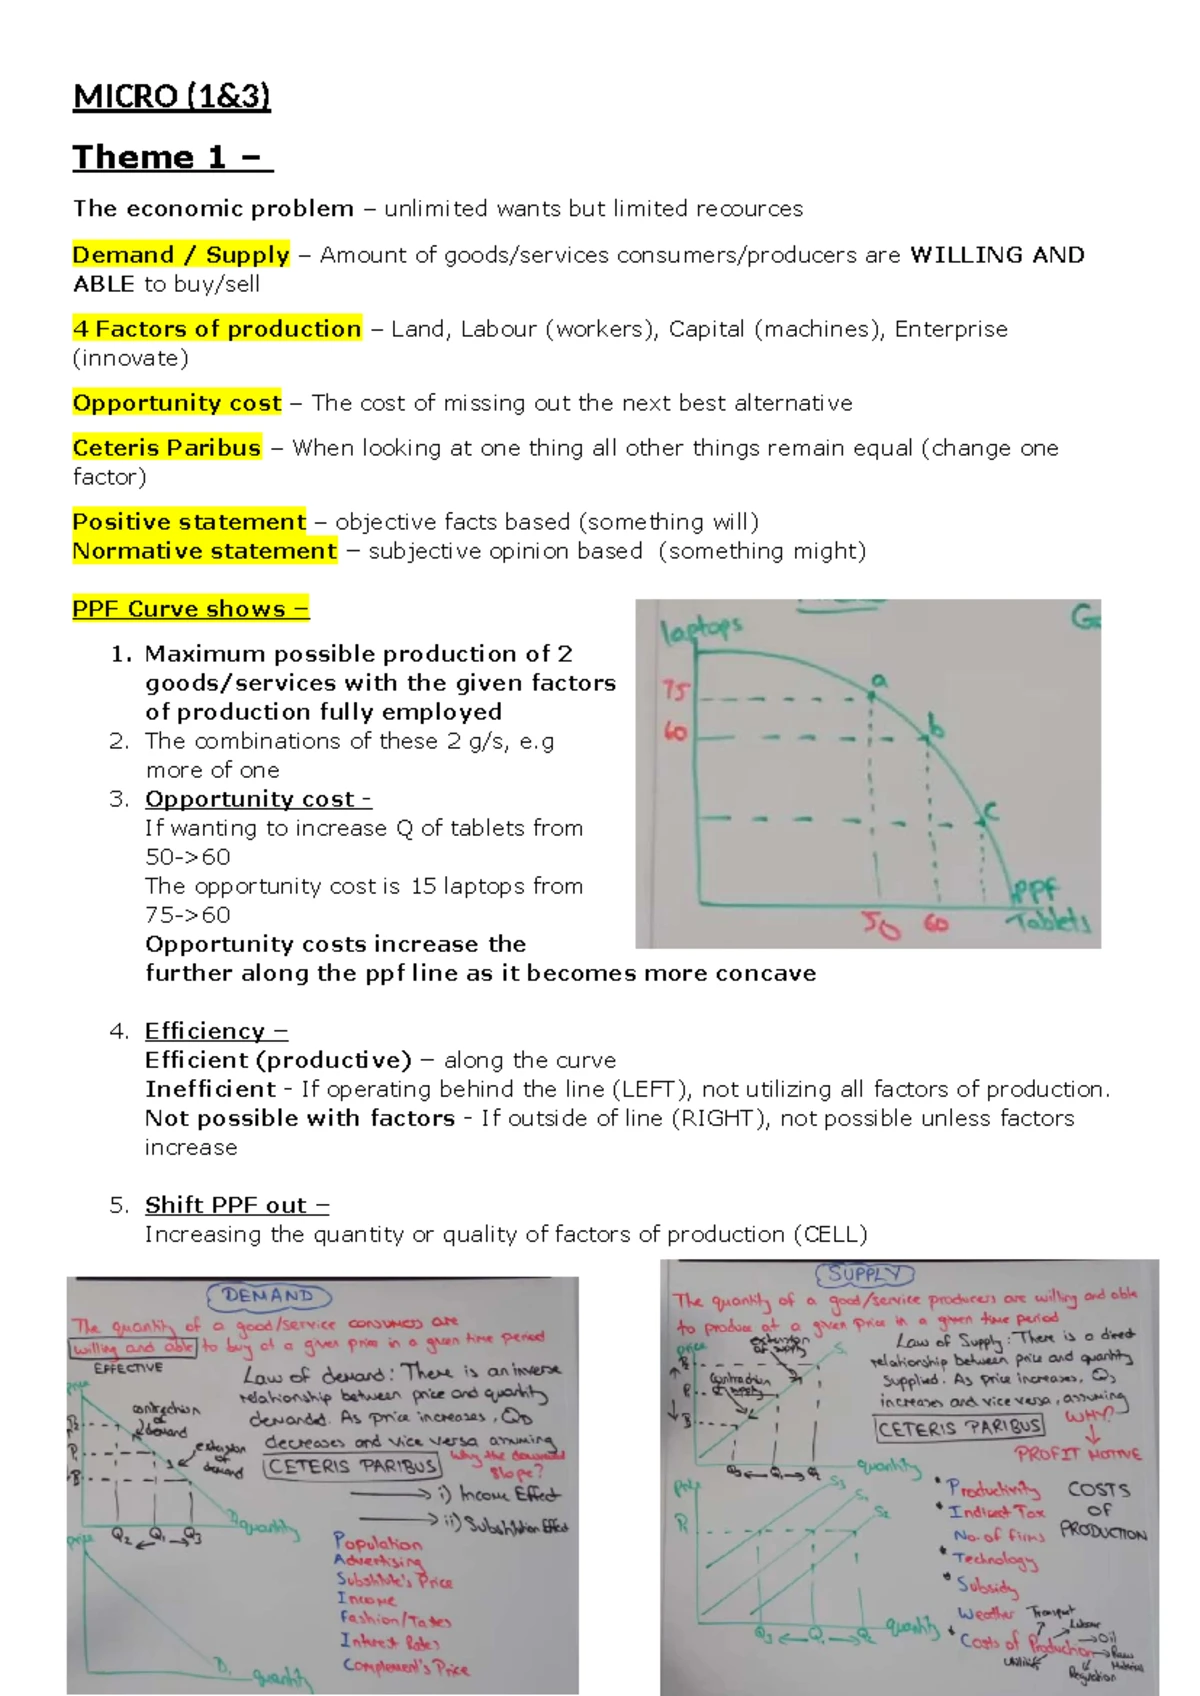 MICRO (1&3)
Theme 1 –
The economic problem – unlimited wants but limited recources
Demand / Supply – Amount of goods/services consumers/producers are WILLING AND
ABLE to buy/sell
4 Factors of production – Land, Labour (workers), Capital (machines), Enterprise
(innovate)
Opportunity cost – The cost of missing out the next best alternative
Ceteris Paribus – When looking at one thing all other things remain equal (change one
factor)
Positive statement – objective facts based (something will)
Normative statement – subjective opinion based  (something might)
PPF Curve shows –
1. Maximum possible production of 2
goods/services with the given factors
of production fully employed
2. The combinations of these 2 g/s, e.g
more of one
3. Opportunity cost -
If wanting to increase Q of tablets from
50->60
The opportunity cost is 15 laptops from
75->60
Opportunity costs increase the
further along the ppf line as it becomes more concave
laptops
75
60
a
b
c
PPF
50 60 Tablets
4. Efficiency –
Efficient (productive) – along the curve
Inefficient - If operating behind the line (LEFT), not utilizing all factors of production.
Not possible with factors - If outside of line (RIGHT), not possible unless factors
increase
5. Shift PPF out –
Increasing the quantity or quality of factors of production (CELL)
DEMAND
The quantity of a good/service consumers are
willing and able to buy at a given price in a given time period
EFFECTIVE
Law of demand: There is an inverse
relationship between price and quantity
demanded. As price increases, QD
decreases and vice versa assuming
CETERIS PARIBUS
Why the downward
slope?
i) Income Effect
ii) Substitution Effect
price
contraction
of
demand
extension
of
demand
P1
Q2 Q1 Q3
D1 quantity
Population
Advertising
Substitute's Price
Income
Fashion/Tastes
Interest Rates
Complement's Price
price
D1 quantity
SUPPLY
The quantity of a good/service producers are willing and able
to produce at a given price in a given time period
Law of Supply: There is a direct
relationship between price and quantity
supplied. As price increases, Qs
increases and vice versa, assuming
CETERIS PARIBUS
WHY?
PROFIT MOTIVE
price
extension
of supply
S1
Contraction
of supply
quantity
Productivity
Indirect Tax
No. of firms
Technology
Subsidy
Weather
Costs of Production
COSTS
OF
PRODUCTION
Transport
Labour
Oil
Raw
Materials
Regulation
Utilities
price
P1
S3 S1 S2
Q3 Q1 Q2 quantity